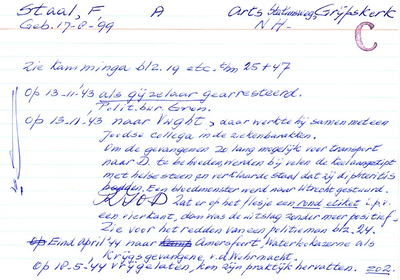 Staal, F A arts Stationsweg, Grijpskerk
Geb. 17-8-'99 N.H.-
C
Zie Kamminga blz. 19 etc. t/m 25 + 47
Op 13-11-'43 als gijzelaar gearresteerd.
Polit. bur. Gron.
Op 13-11-'43 naar Vught, waar werkte hij samen met een
Joodse collega in de ziekenbarakken.
Om de gevangenen zo lang mogelijk voor transport
naar D. te behoeden, werden bij velen de keel aangestipt
met helse steen en verklaarde Staal dat zij diphteritis
hadden. Een bloedmonster werd naar Utrecht gestuurd.
Zat er op het flesje een rond etiket i.p.v.
een vierkant, dan was de uitslag zonder meer positief.
Zie voor het redden van een politieman blz. 24.
Op Eind April '44 naar kamp Amersfoort, Waterlokazerne als
Krijgsgevangene, v.d. Wehrmacht.
Op 18-5-'44 vrijgelaten, kon zijn praktijk hervatten. z.o.z.